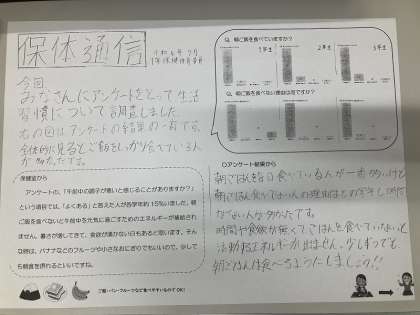 保体通信
令和6年7月
1年保健体育委員
今回
みなさんにアンケートをとって生活
習慣について調査しました。
右の図はアンケートの結果の一部です。
全体的に見るとご飯をしっかり食べている人が
多かったです。
朝ご飯を食べていますか?
1年生
2年生
3年生
朝ご飯を食べない理由は何ですか?
保健室から
アンケートの、「午前中の調子が悪いと感じることがありますか?」
という項目では、「よくある」と答えた人が各学年約15%いました。朝
ご飯を食べないと午前中を元気に過ごすためのエネルギーが補給され
ません。暑さが増してきて、食欲が湧かない日もあると思います。そん
な時は、バナナなどのフルーツや小さなおにぎりでもいいので、少しで
も朝食を摂れるといいですね。
ご飯・パン・フルーツなど食べやすいものでOK!
○アンケート結果から
朝ごはんは毎日食べている人が一番多いけど
朝ごはん食べてない人の理由は
時間や食欲が無くてごはんを食べていないと
活動するエネルギーが出ません。少しずつでも
朝ごはんは食べるようにしましょう!!